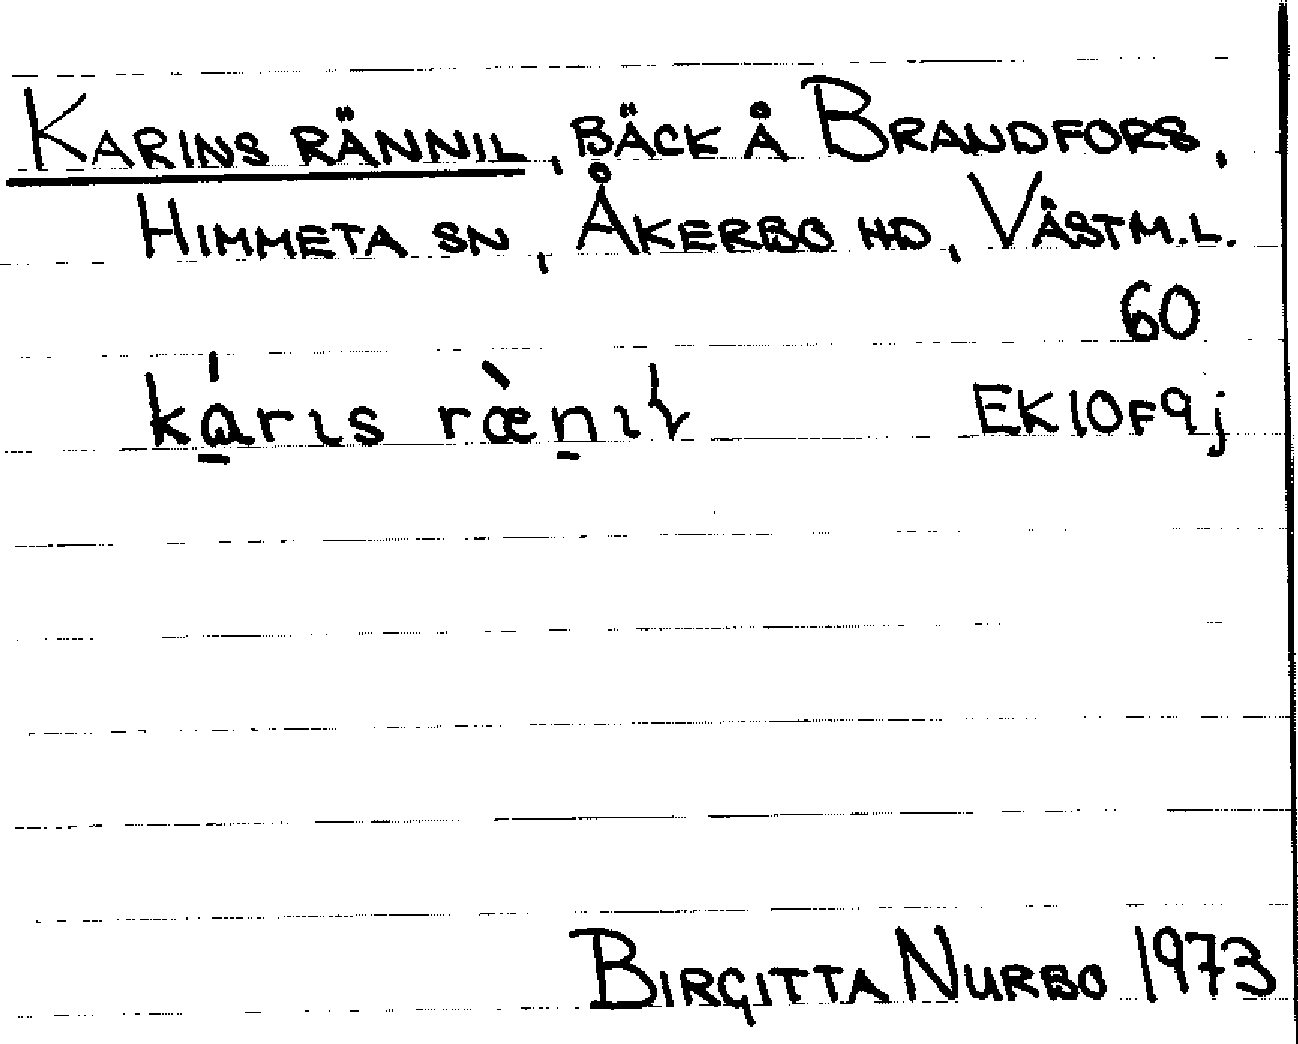 KARINS RÄNNIL, BÄCK Å BRANDFORS,
HIMMETA SN, ÅKERBO HD, VÄSTM.L.
60
ká̱rıs ræ̀ṉıɫ EK10F9j
BIRGITTA NURBO 1973